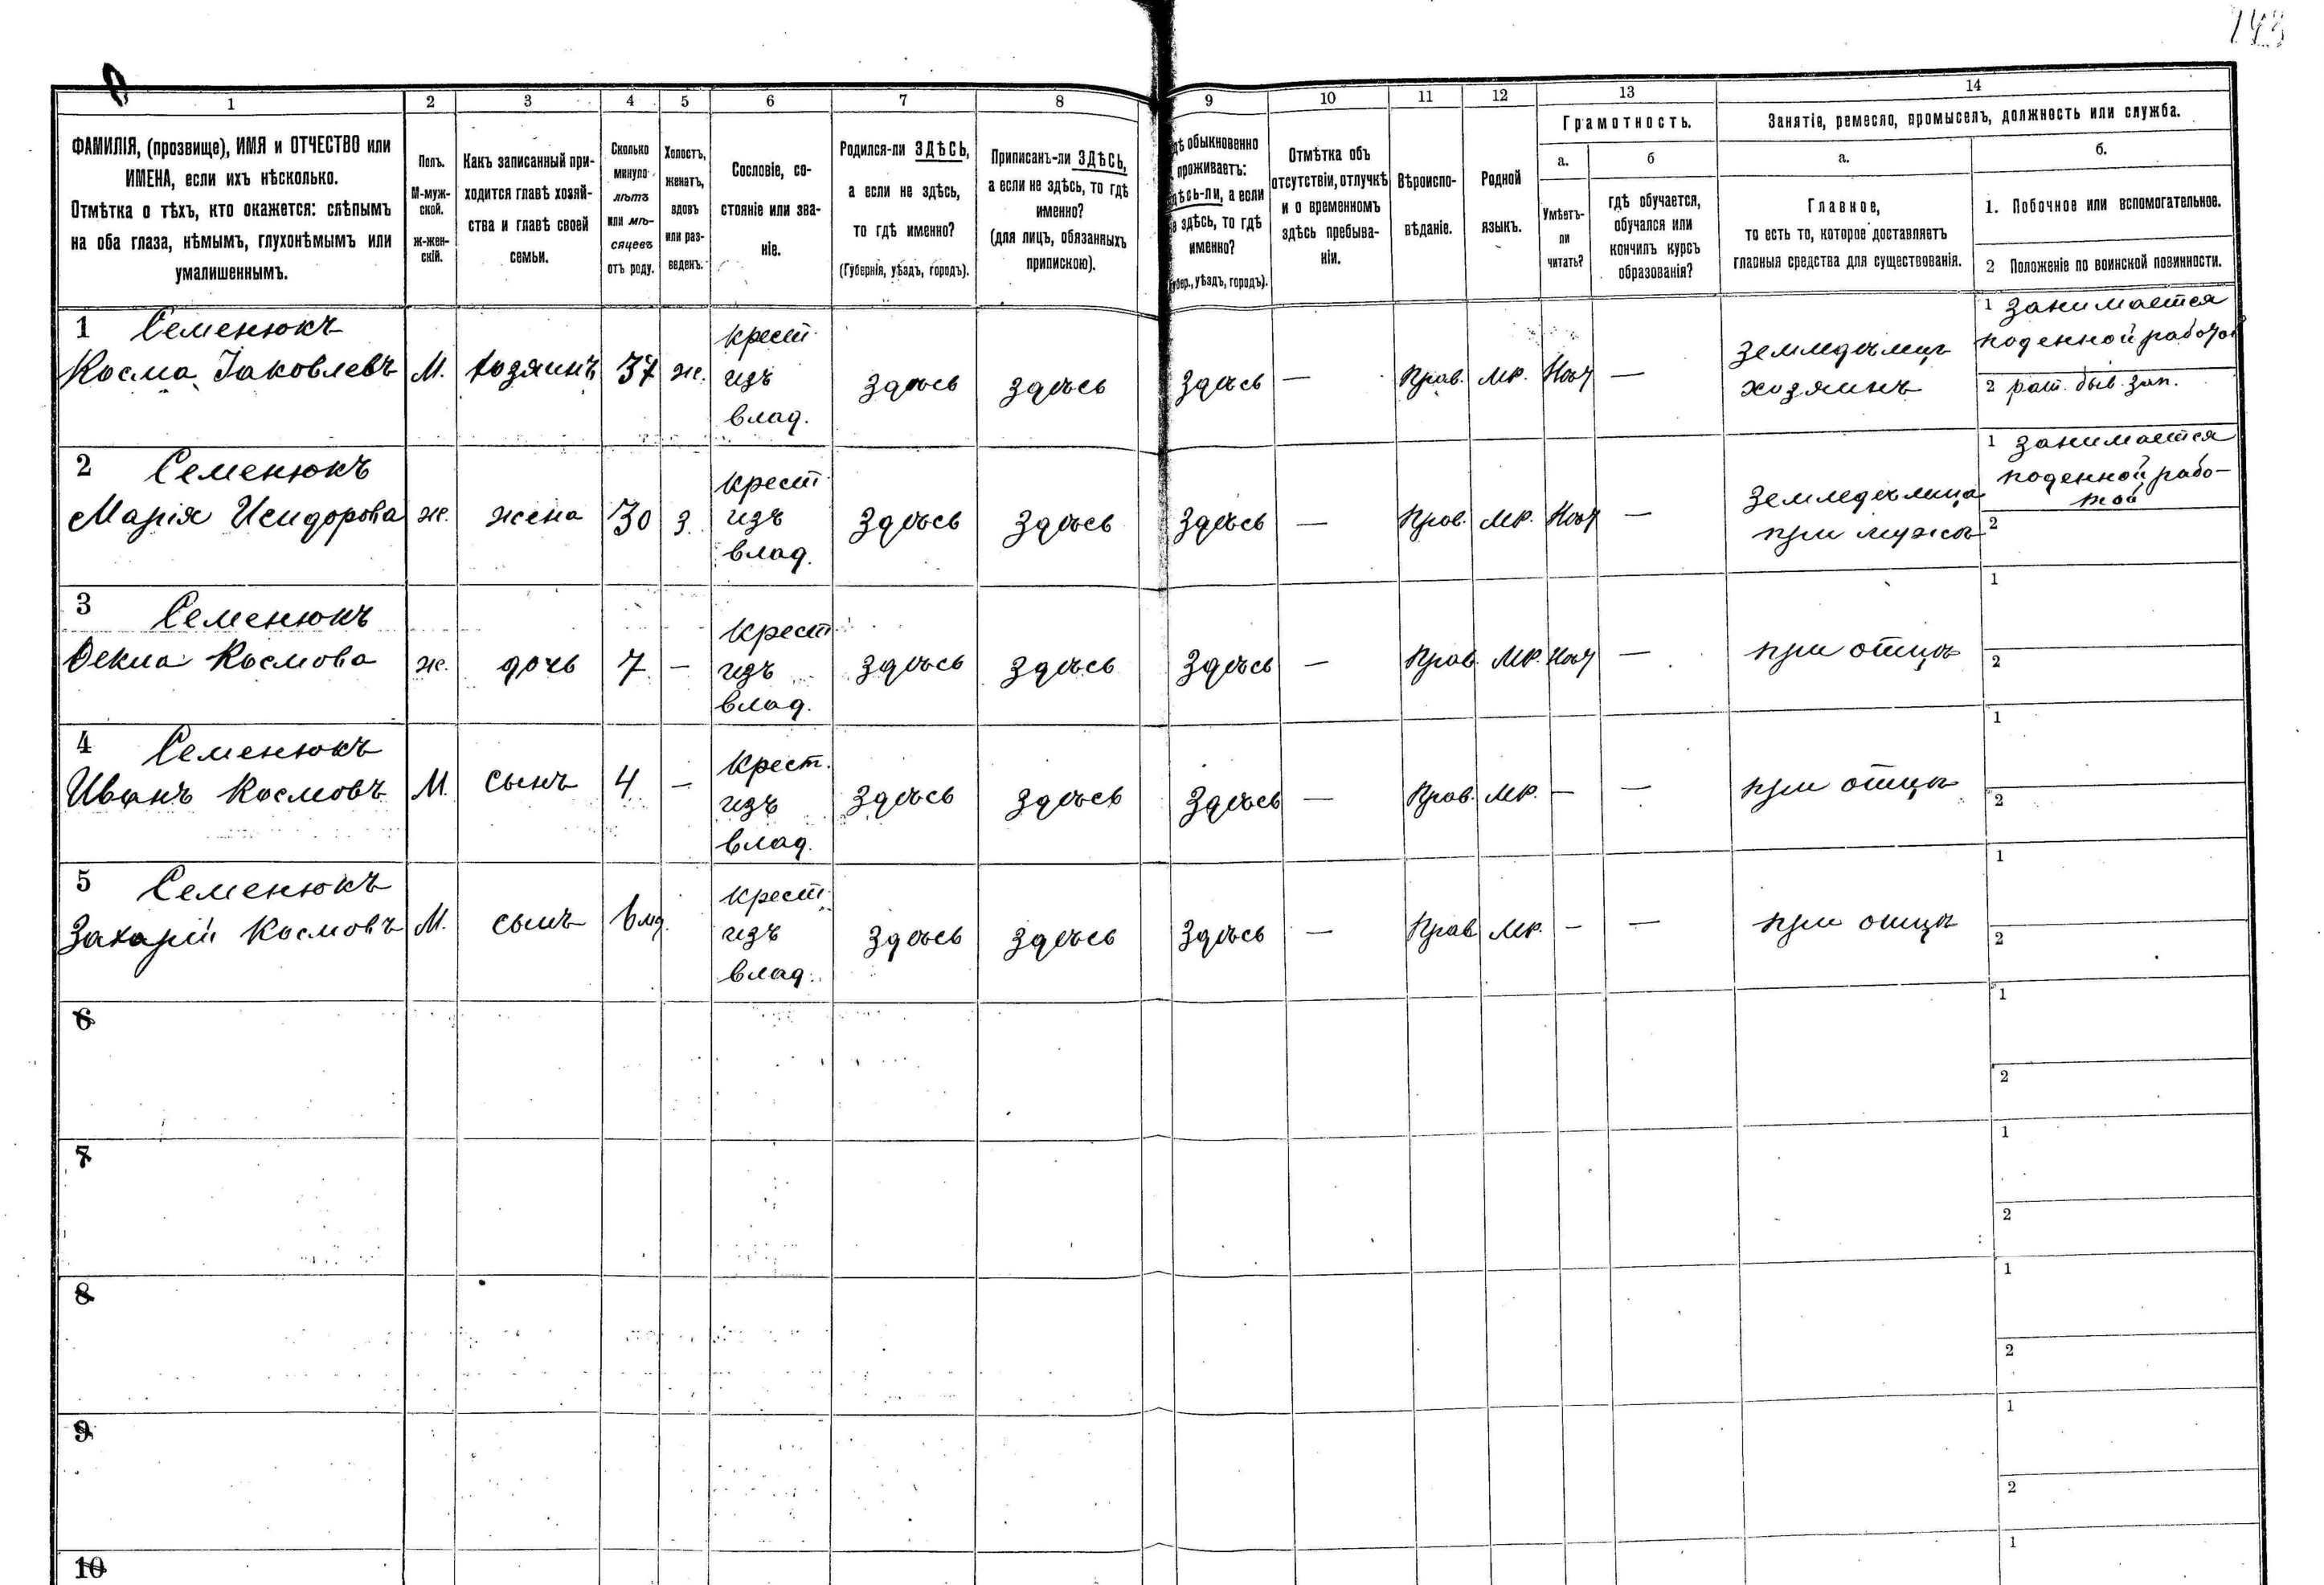 143
1 2 3 4 5 6 7 8 9 10 11 12 13 14
ФАМИЛІЯ, (прозвище), ИМЯ и ОТЧЕСТВО или
ИМЕНА, если ихъ нѣсколько.
Отмѣтка о тѣхъ, кто окажется: слѣпымъ
на оба глаза, нѣмымъ, глухонѣмымъ или
умалишеннымъ.
Полъ.
М-муж-
ской.
Ж-жен-
скій.
Какъ записанный при-
ходится главѣ хозяй-
ства и главѣ своей
семьи.
Сколько
минуло
лѣтъ
или мѣ-
сяцевъ
отъ роду.
Холостъ,
женатъ,
вдовъ
или раз-
веденъ.
Сословіе, со-
стояніе или зва-
ніе.
Родился-ли ЗДѢСЬ,
а если не здѣсь,
то гдѣ именно?
(Губернія, уѣздъ, городъ).
Приписанъ-ли ЗДѢСЬ,
а если не здѣсь, то гдѣ
именно?
(для лицъ, обязанныхъ
припискою).
дѣ обыкновенно
проживаетъ:
дѣсь-ли, а если
е здѣсь, то гдѣ
именно?
убер., уѣздъ, городъ).
Отмѣтка объ
отсутствіи, отлучкѣ
и о временномъ
здѣсь пребыва-
ніи.
Вѣроиспо-
вѣданіе.
Родной
языкъ.
Грамотность.
а.
Умѣетъ-
ли
читать?
б
гдѣ обучается,
обучался или
кончилъ курсъ
образованія?
Занятіе, ремесло, промыселъ, должность или служба.
а.
Главное,
то есть то, которое доставляетъ
главныя средства для существованія.
б.
1. Побочное или вспомогательное.
2 Положеніе по воинской повинности.
1 Семенюкъ
Косма Іаковлевъ
М.
хозяинъ
37
ж.
крест.
изъ
влад.
здѣсь
здѣсь
здѣсь
—
Прав.
Мр.
—
земледѣлец
хозяинъ
1 занимается
поденной работой
2 рат. быв. зап.
2 Семенюкъ
Марія Исидорова
ж.
жена
30
з.
крест.
изъ
влад.
здѣсь
здѣсь
здѣсь
—
Прав.
Мр.
—
земледѣлица
при мужѣ
1 занимается
поденной рабо-
той
2
3 Семенюкъ
Ѳекла Космова
ж.
дочь
7
—
крест.
изъ
влад.
здѣсь
здѣсь
здѣсь
—
Прав.
Мр.
—
при отцѣ
1
2
4 Семенюкъ
Иванъ Космовъ
М.
сынъ
4
—
крест.
изъ
влад.
здѣсь
здѣсь
здѣсь
—
Прав.
Мр.
—
—
при отцѣ
1
2
5 Семенюкъ
Захарій Космовъ
М.
сынъ
крест.
изъ
влад.
здѣсь
здѣсь
здѣсь
—
Прав
Мр.
—
—
при отцѣ
1
2
6
1
2
7
1
2
8
1
2
9
1
2
10
1